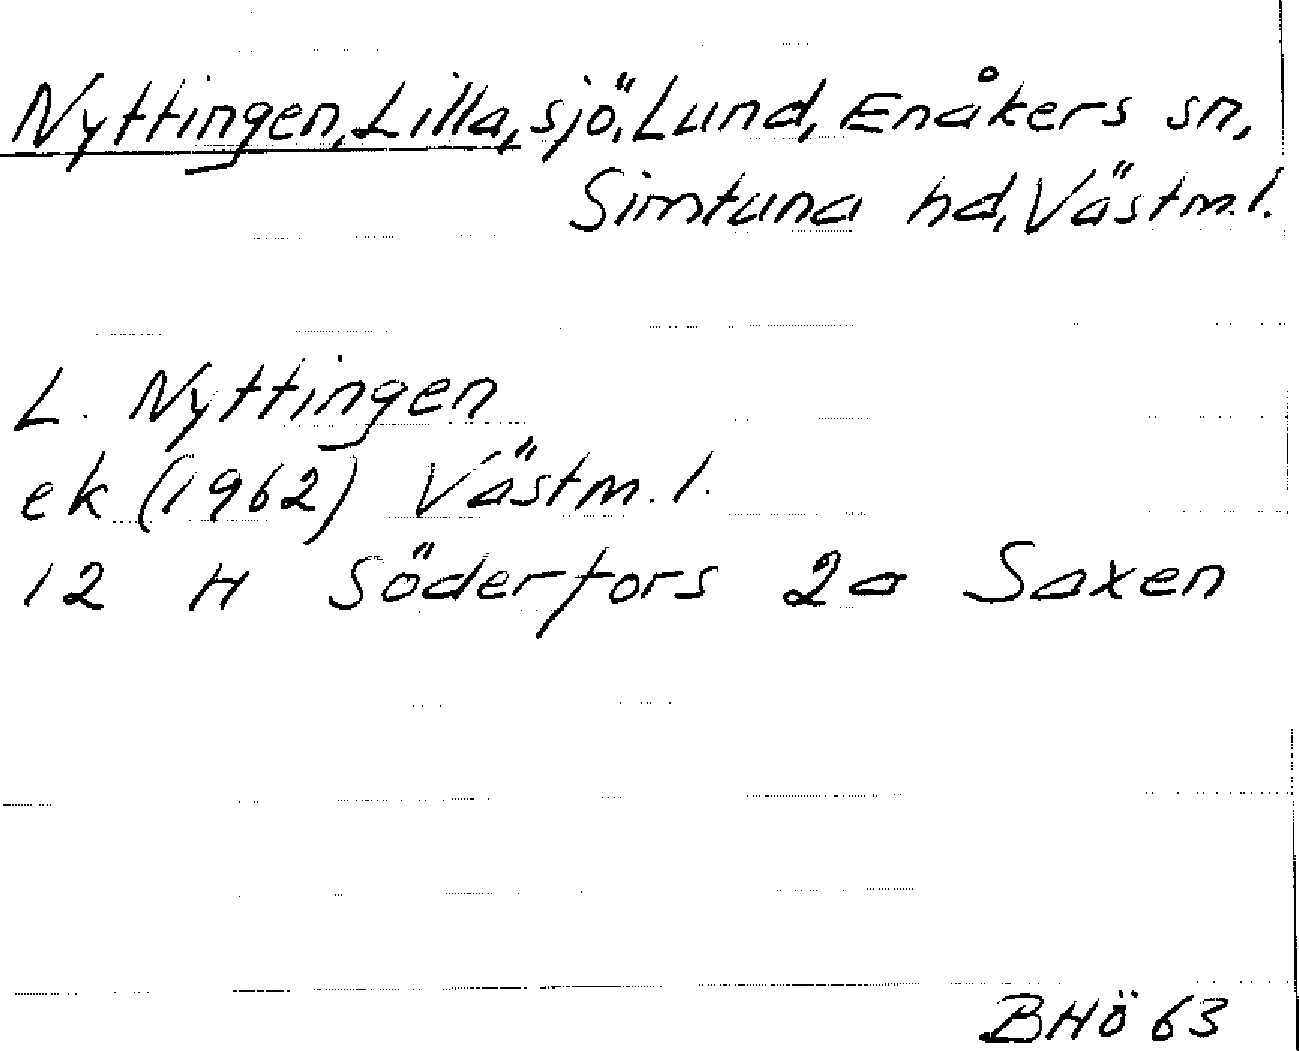 Nyttingen, Lilla, sjö, Lund, Enåkers sn,
Simtuna hd, Västm.l.
L. Nyttingen
ek (1962) Västm.l.
12 H Söderfors 2a Saxen
BHÖ 63